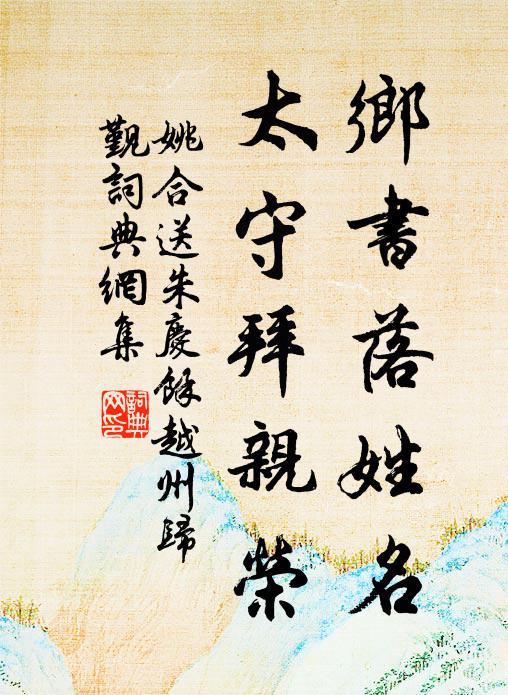 鄉書落姓名
太守拜親榮
姚合送朱慶餘越州歸
觐詞典網集
詞典
网印